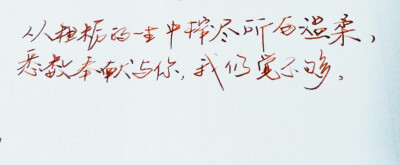 从粗粝的一生中榨尽所有温柔，
悉数奉献与你，我仍觉不够。